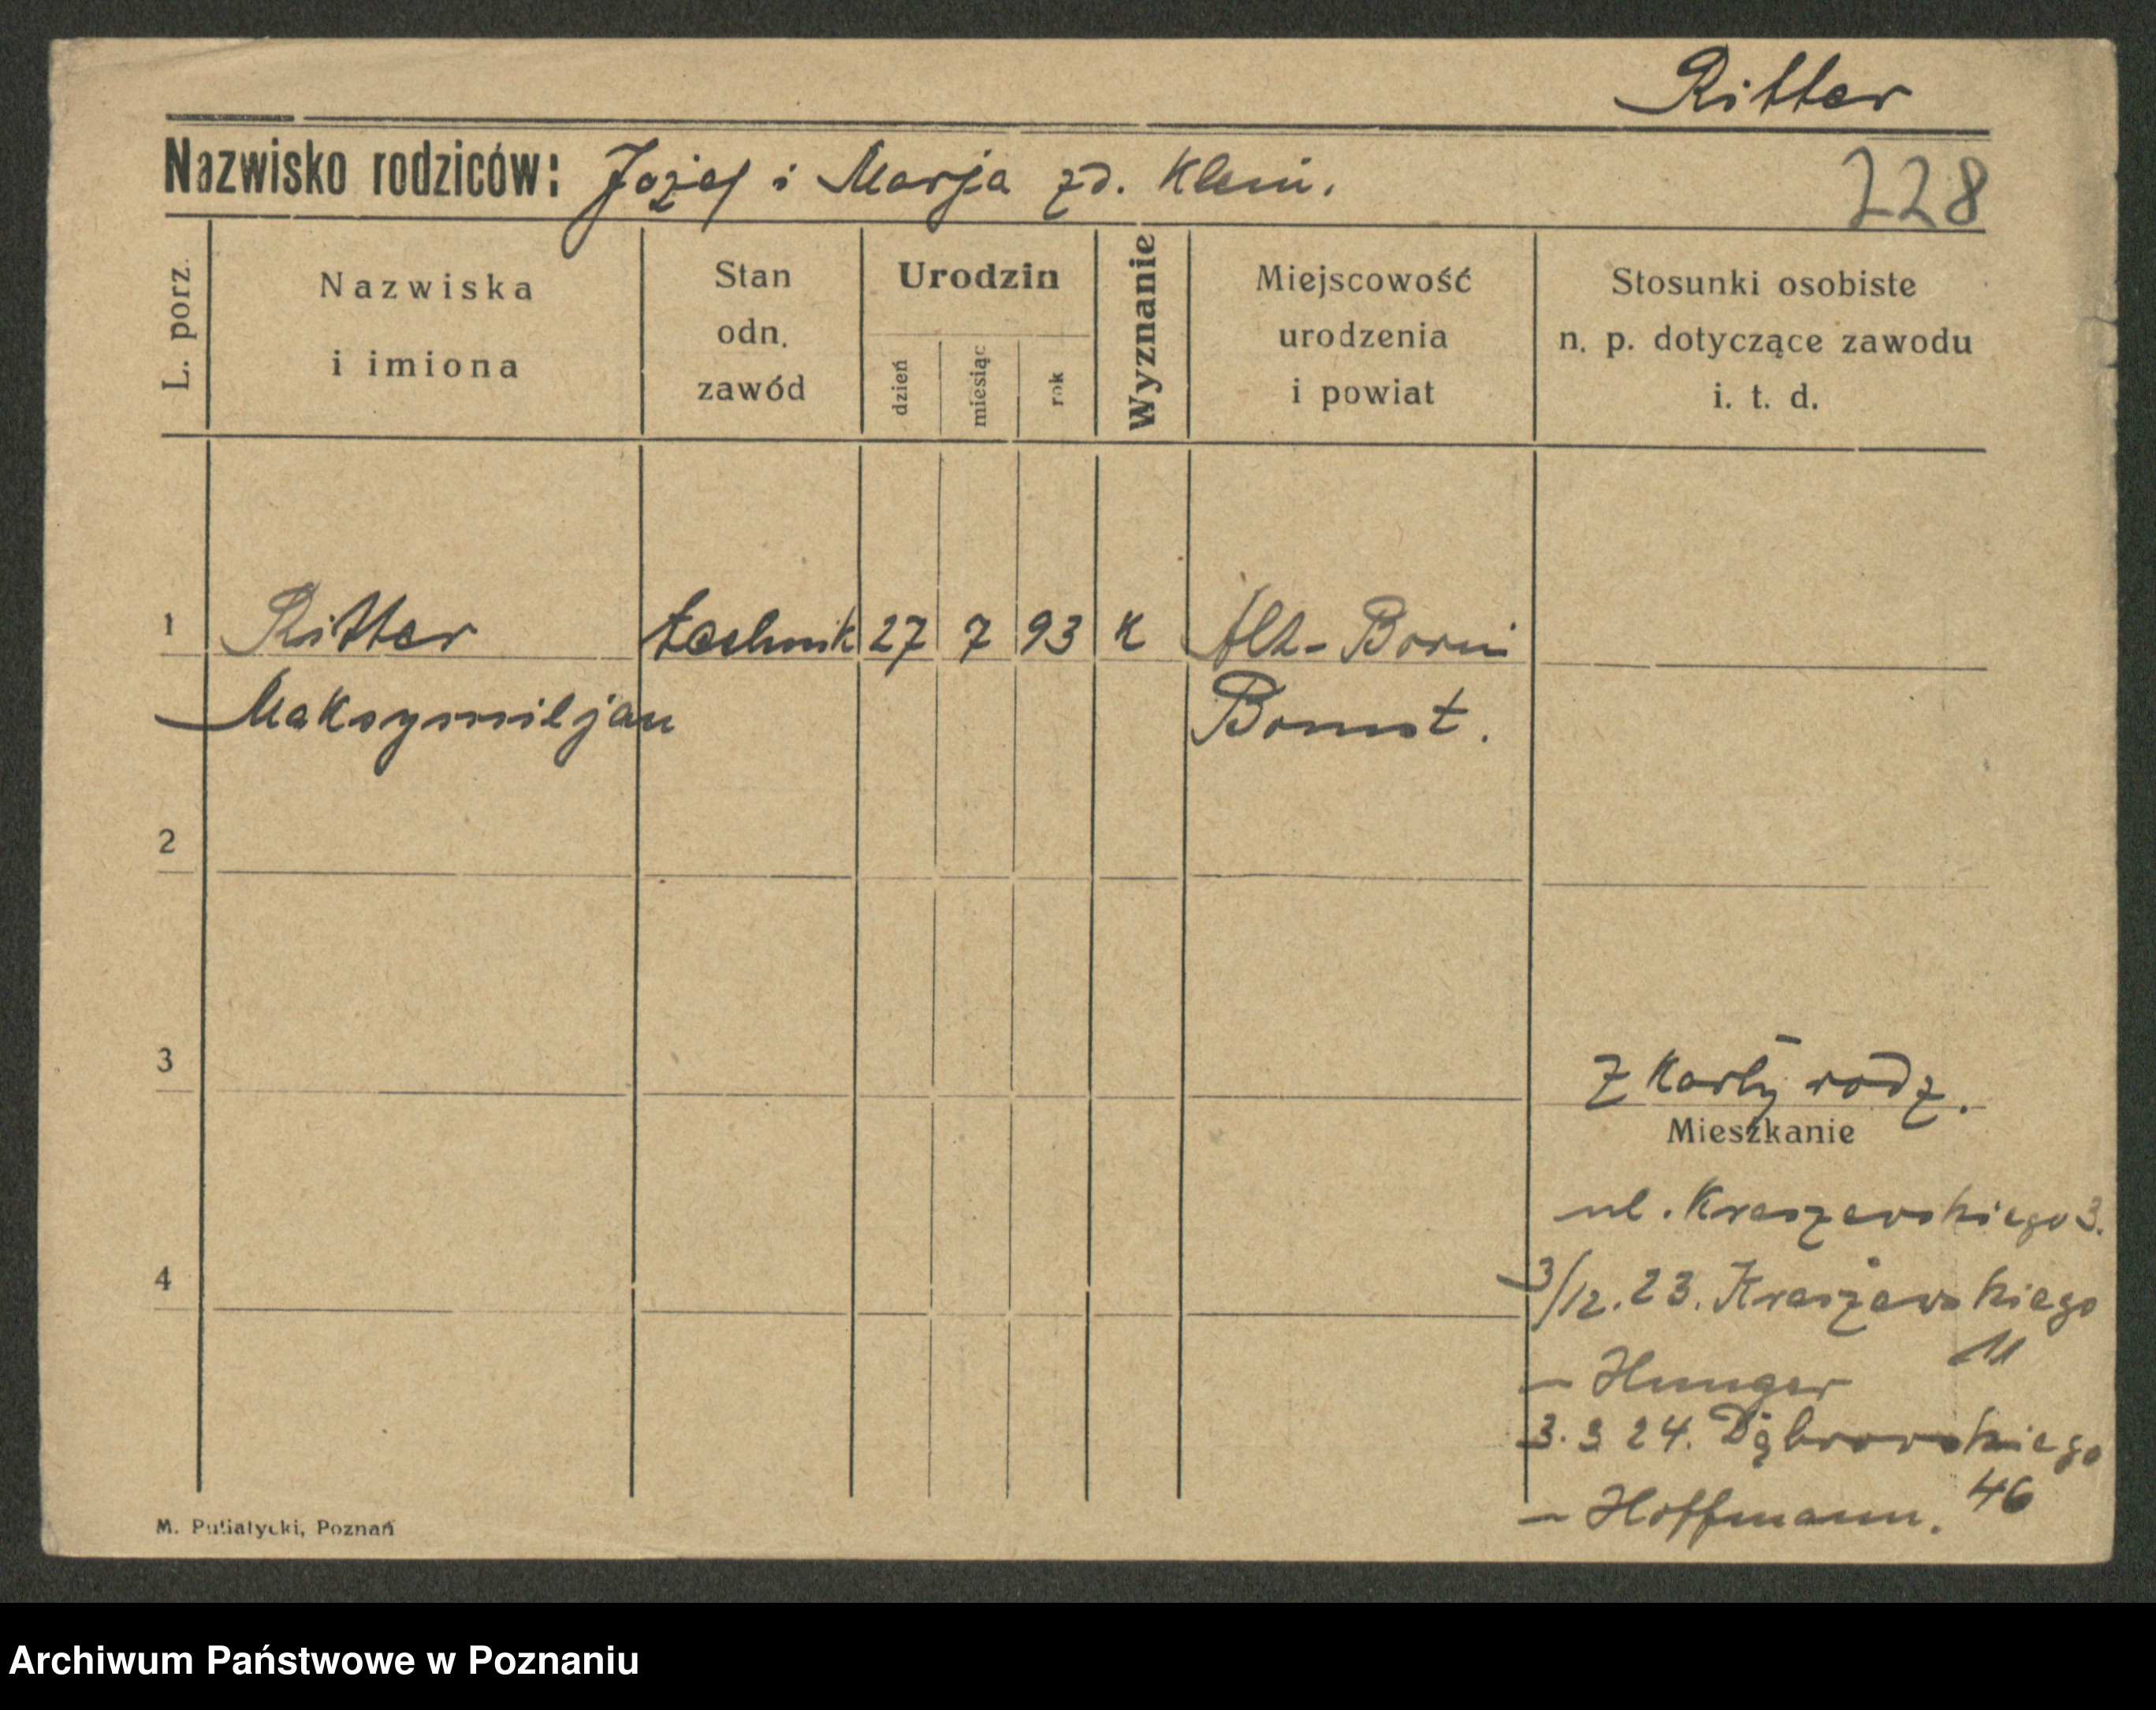 Ritter
Nazwisko rodziców: Jozef i Marja zd. Klein.
228
L. porz.
Nazwiska
i imiona
Stan
odn.
zawód
Urodzin
dzień
miesiąc
rok
Wyznanie
Miejscowość
urodzenia
i powiat
Stosunki osobiste
n. p. dotyczące zawodu
i. t. d.
1 Ritter technik 27 7 93 K Alt-Borui
Maksymiljan Bomst.
2
3
Z Karty rodz.
Mieszkanie
ul. Kraszewskiego 3.
4
3/12. 23. Kraszewskiego
11
- Hunger
3. 3 24. Dąbrowskiego
46
- Hoffmann.
M. Putiatycki, Poznań
Archiwum Państwowe w Poznaniu